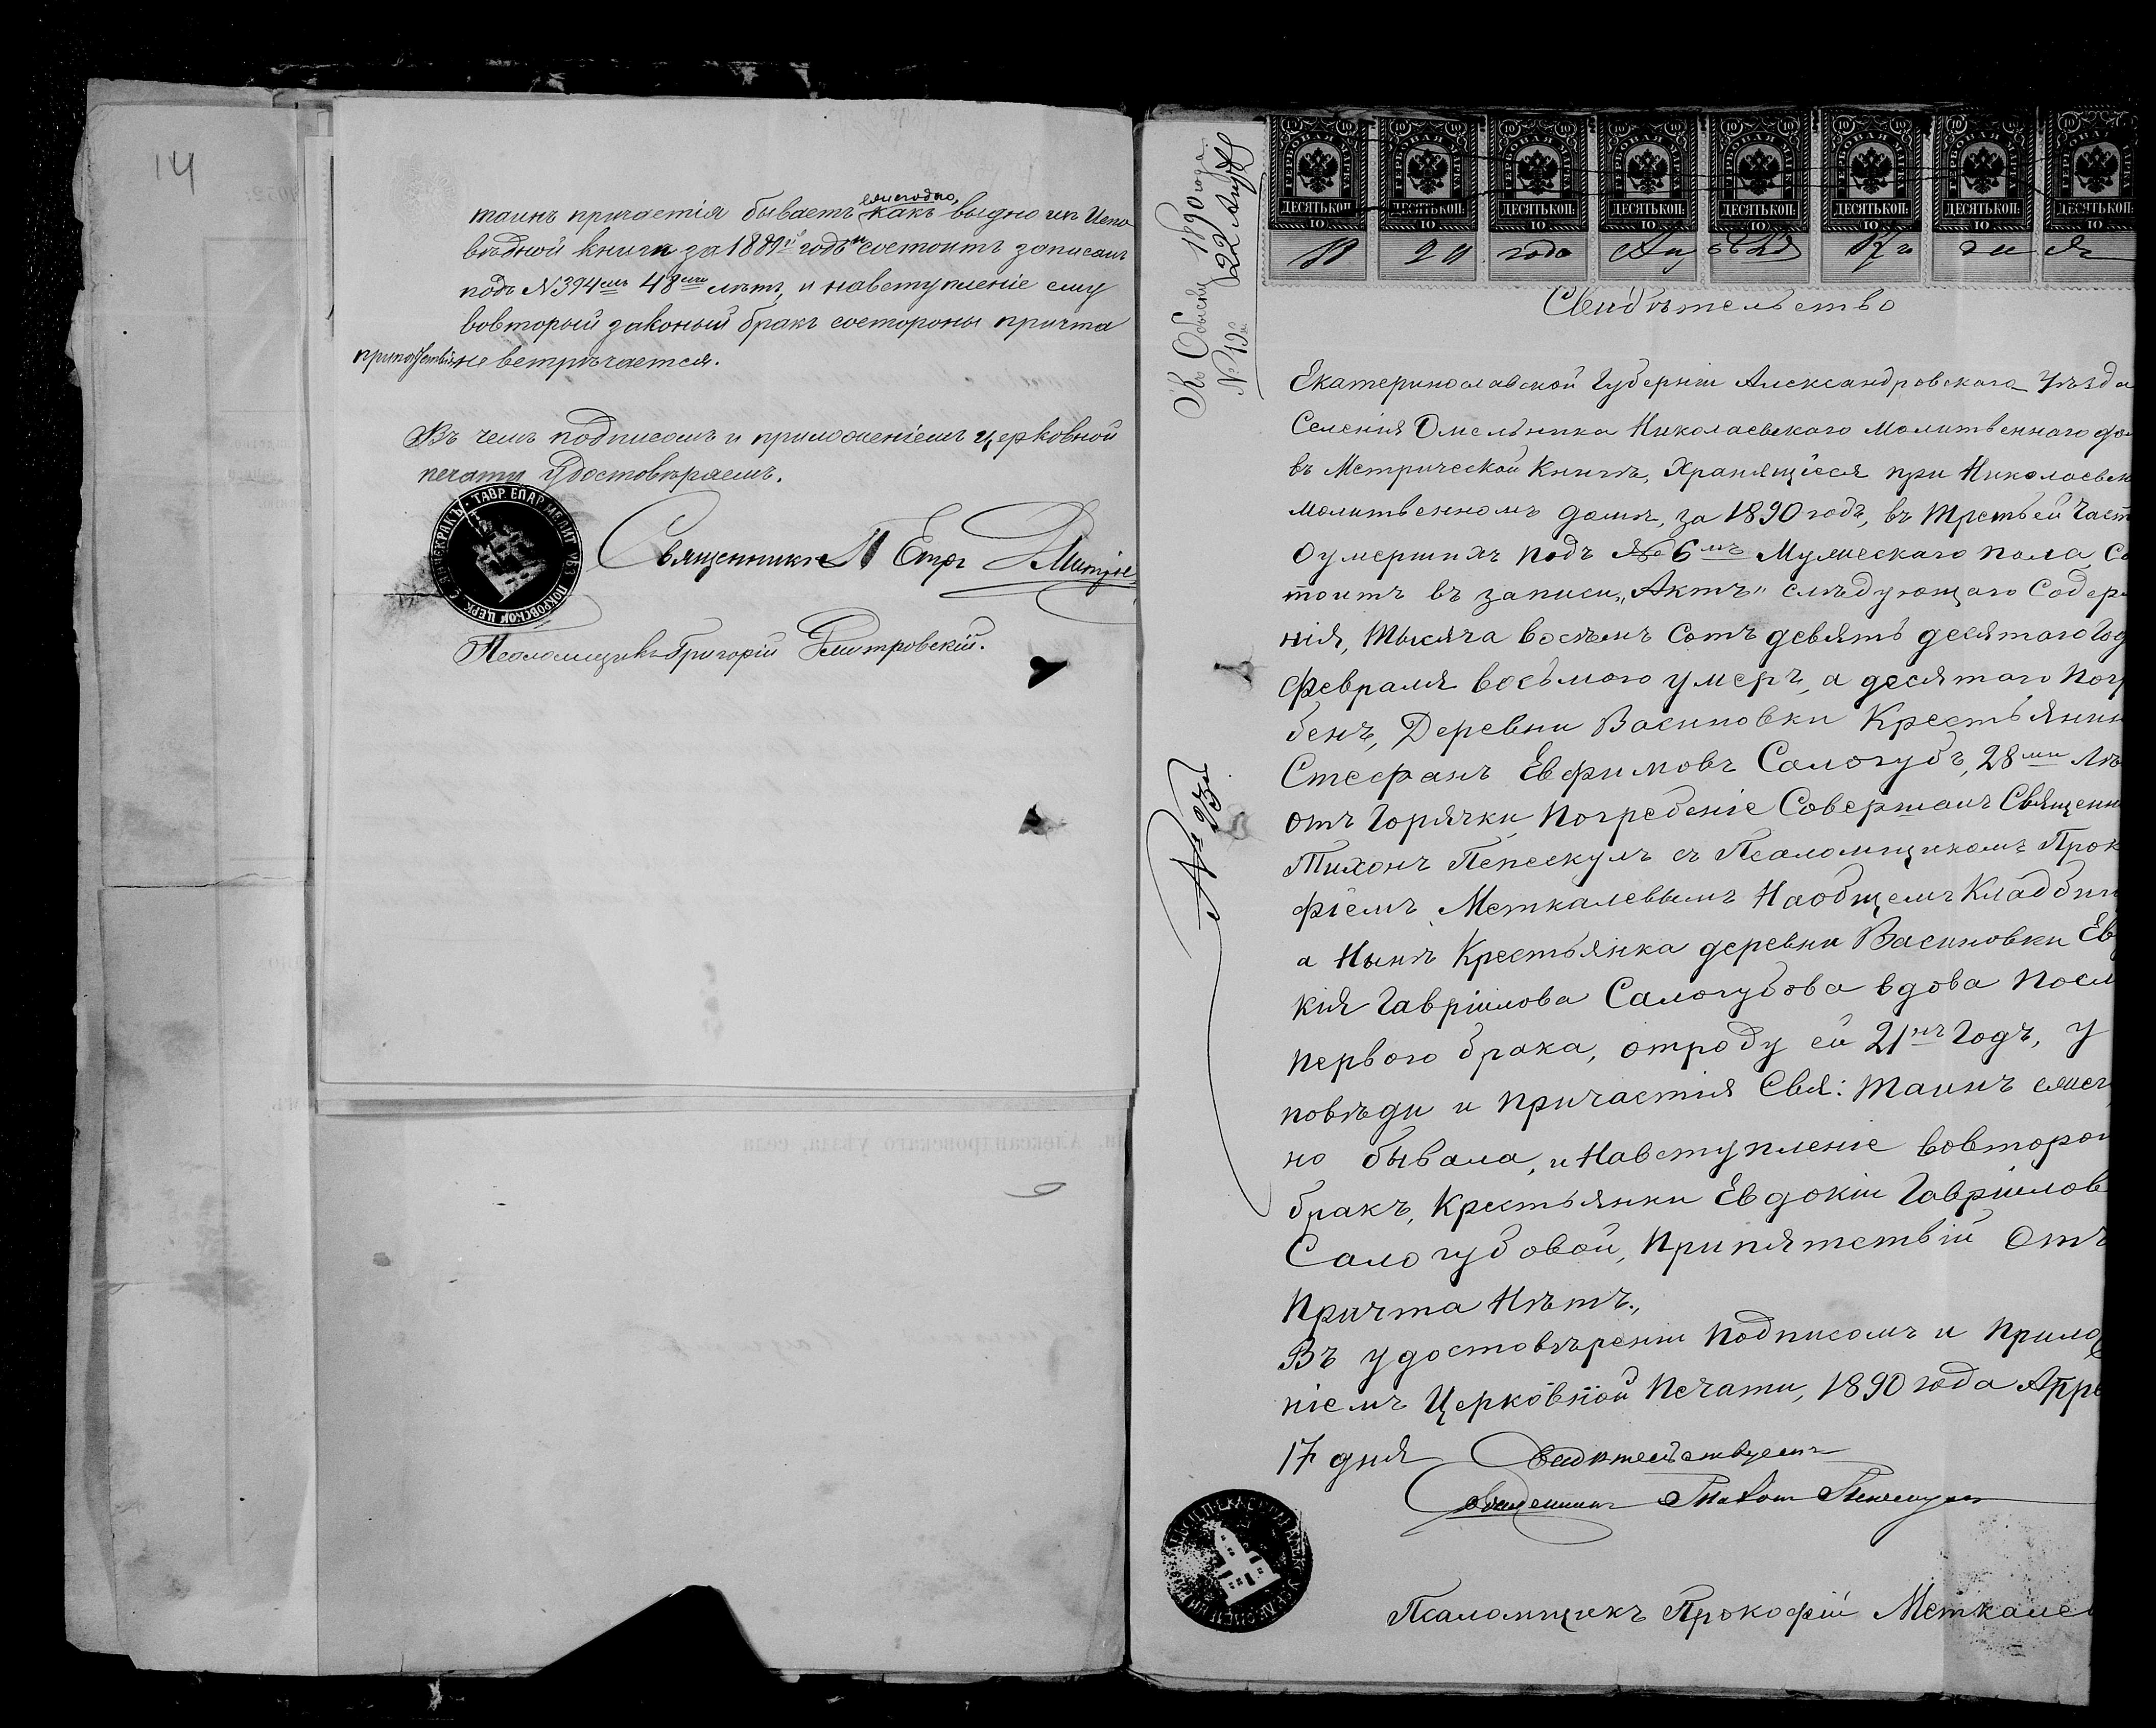 14
таинъ причастія бываетъ ежегодно, какъ выдно изъ Испо
вѣдной книги за 188 годъ состоитъ записанъ
подъ №394мъ 48ми лѣтъ, и навступленіе ему
вовторый законый бракъ состороны причта
препятствій не встрѣчается.
Въ чемъ подписомъ и приложеніемъ церковной
печати удостовѣряемъ.
ТАВР. ЕПАР. МЕЛИТ. УѢЗ. ПОКРОВСКОЙ ЦЕРК.
Священникъ Петръ
Псаломщикъ Григорій Дмитровскій.
Къ Обыску 1890 года.
№19й 22
ГЕРБОВАЯ МАРКА ДЕСЯТЬ КОП. 10
ГЕРБОВАЯ МАРКА ДЕСЯТЬ КОП. 10
ГЕРБОВАЯ МАРКА ДЕСЯТЬ КОП. 10
ГЕРБОВАЯ МАРКА ДЕСЯТЬ КОП. 10
ГЕРБОВАЯ МАРКА ДЕСЯТЬ КОП. 10
ГЕРБОВАЯ МАРКА ДЕСЯТЬ КОП. 10
ГЕРБОВАЯ МАРКА ДЕСЯТЬ КОП. 10
ГЕРБОВАЯ МАРКА ДЕСЯТЬ КОП. 10
года
Свидѣтельство
Екатеринославской Губерніи Александровскаго Уѣзда
Селенія Омельника Николаевскаго Молитвеннаго до
въ Метрической Книгѣ, Хранящіеся при Николаевск
молитвенномъ домѣ, за 1890 годъ, въ Третьей Част
Оумершихъ подъ №6мъ Мужескаго пола Со
тоитъ въ записи „Актъ" слѣдующаго Содер
нія, Тысяча восемъ Сотъ девять десятаго Год
Февраля восьмого умеръ, а десятаго Погр
бенъ, Деревни Васиновки Крестьянин
Стефанъ Евфимовъ Салогубъ, 28ми Лѣ
отъ Горячки, Погребеніе Совершалъ Священн
Тихонъ Пепескулъ съ Псаломщикомъ Прок
фіемъ Меткалевымъ Наобщемъ Кладби
а Нынѣ Крестьянка деревни Васиновки Ев
кія Гавріилова Салогубова вдова Посл
первого брака, отроду ей 21нъ Годъ, у
повѣди и причастія Свя: Таинъ ежег
но бывала, и Навступленіе вовторой
бракъ, Крестьянки Евдокіи Гавріилов
Салогубовой, Припятствій Отъ
Причта Нѣтъ.,
Въ удостовѣреніи Подписомъ и Прило
ніемъ Церковной Печати, 1890 года Апре
17 дня Свидѣтельствуемъ
Священникъ Тихонъ Пепескулъ
Псаломщикъ Прокофій Меткале
№ 23й
ни, Александровскаго уѣзда, села